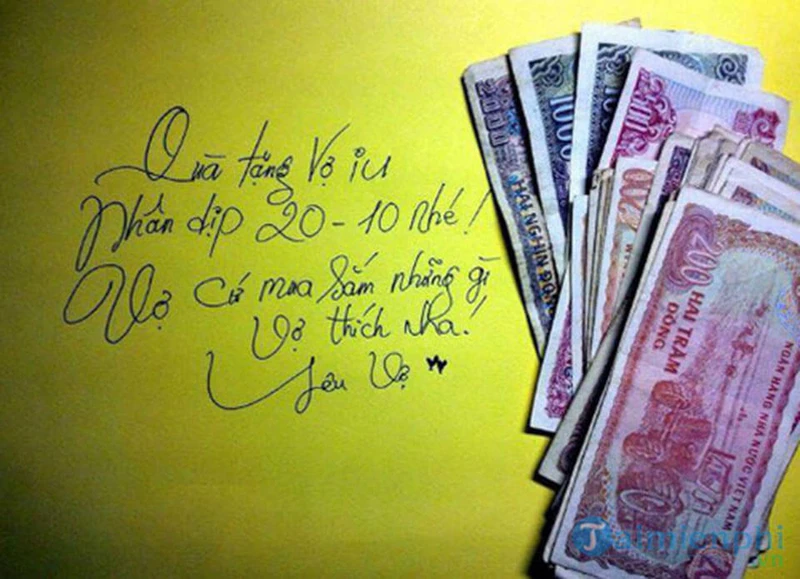 Quà tặng Vợ iu
Nhân dịp 20-10 nhé!
Vợ cứ mua sắm những gì
Vợ thích nha!
Yêu Vợ
2000
HAI NGHÌN ĐỒNG
1000
500
200
200 HAI TRĂM
ĐỒNG
NGÂN HÀNG NHÀ NƯỚC VIỆT NAM
Taimienphi
.vn